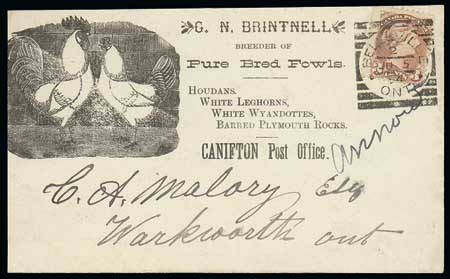 C. N. BRINTNELL,
BREEDER OF
Pure Bred Fowls.
HOUDANS.
WHITE LEGHORNS,
WHITE WYANDOTTES,
BARRED PLYMOUTH ROCKS.
CANIFTON Post Office.
C. A. Malory Esq
Warkworth ont
ONT